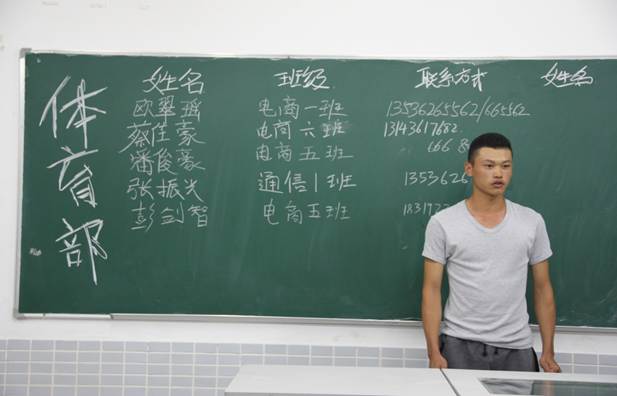 体育部
姓名 班级 联系方式 姓名
欧翠瑶 电商一班 13536265562/665562
蔡佳豪 电商六班 13143617682
潘俊豪 电商五班 6668
张振光 通信1班 1353626
彭剑智 电商五班